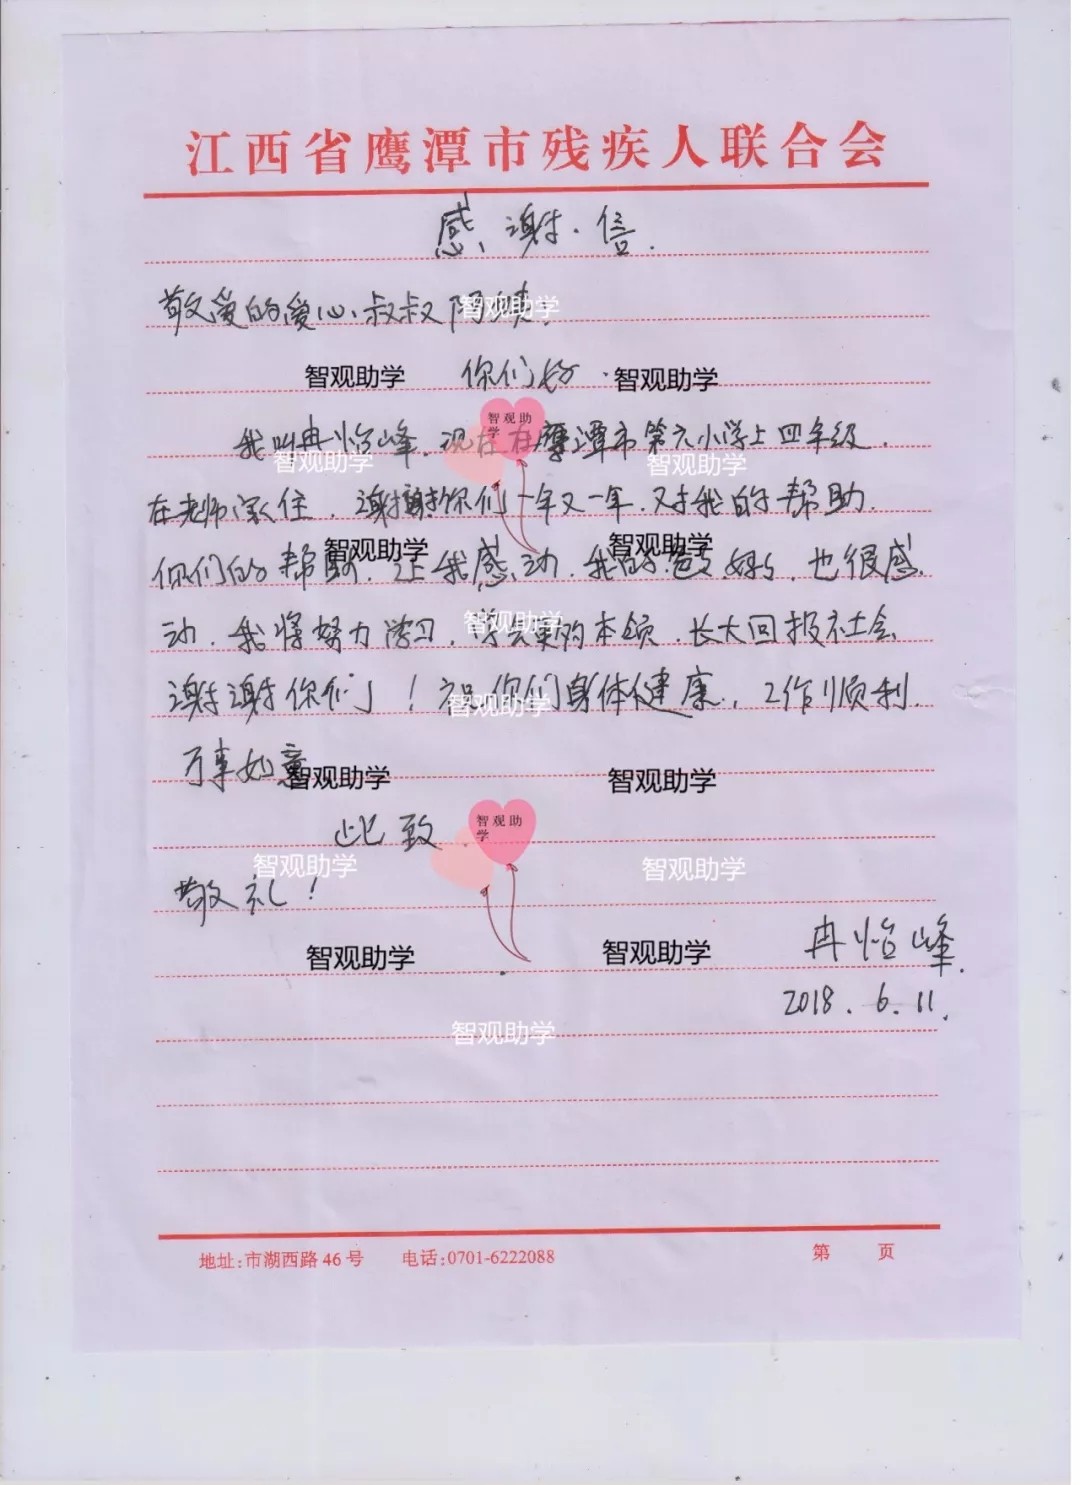 江西省鹰潭市残疾人联合会
感谢信.
敬爱的爱心叔叔阿姨:
智观助学
你们好
智观助学
智观助学
智观助学
我叫冉怡峰.现在在鹰潭市第六小学上四年级.
智观助学
智观助学
在老师家住.谢谢你们一年又一年.对我的帮助.
智观助学
智观助学
你们的帮助.让我感动.我的爸爸妈妈.也很感
智观助学
动.我将努力学习.学会更的本领.长大回报社会
谢谢你们了!祝你们身体健康,工作顺利.
智观助学
万事如意
智观助学
智观助学
此致
智观助学
敬礼!
智观助学
智观助学
冉怡峰.
智观助学
智观助学
2018.6.11.
智观助学
地址:市湖西路46号 电话:0701-6222088 第 页